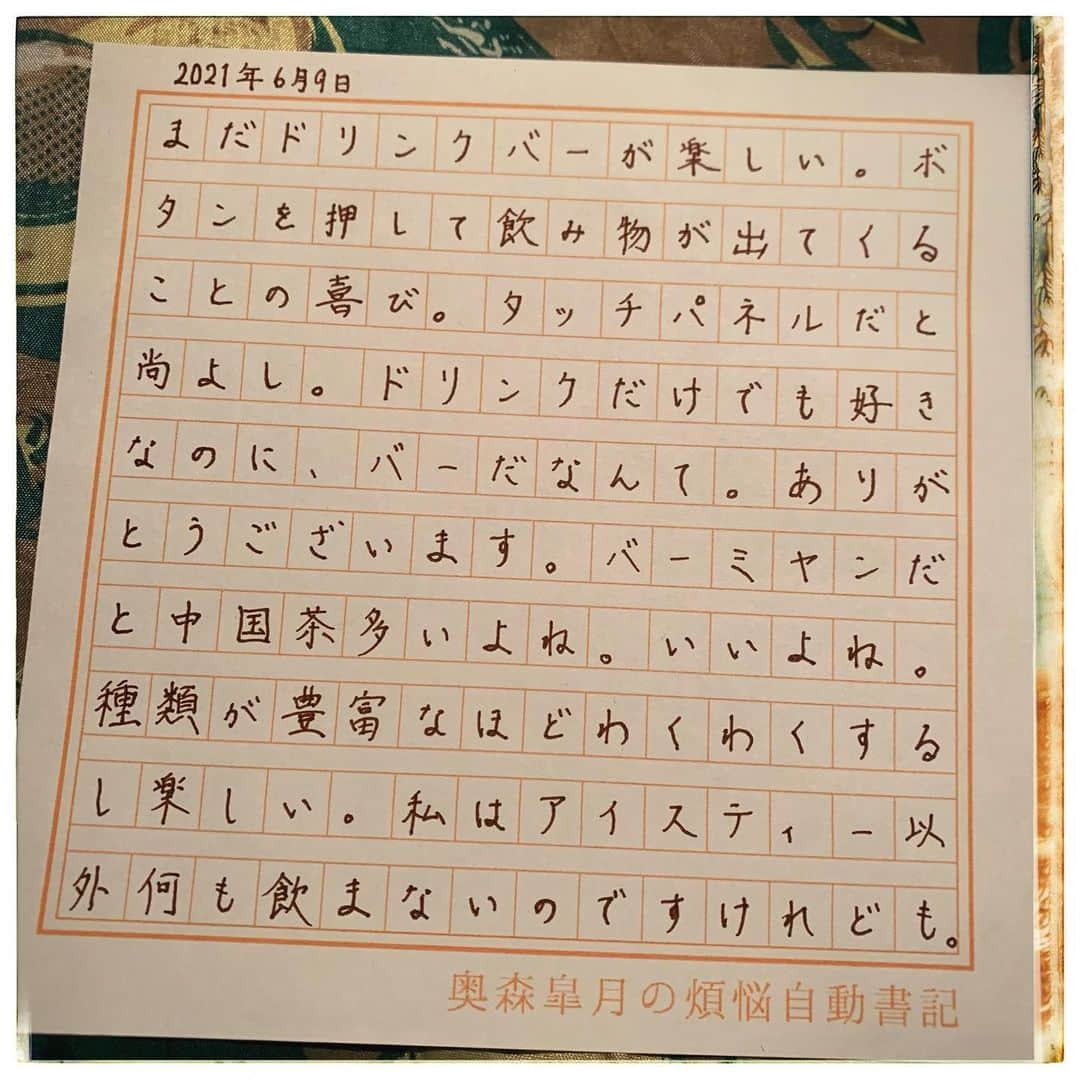 2021年6月9日
まだドリンクバーが楽しい。ボ
タンを押して飲み物が出てくる
ことの喜び。タッチパネルだと
尚よし。ドリンクだけでも好き
なのに、バーだなんて。ありが
とうございます。バーミヤンだ
と中国茶多いよね。いいよね。
種類が豊富なほどわくわくする
し楽しい。私はアイスティー以
外何も飲まないのですけれども。
奥森皐月の煩悩自動書記